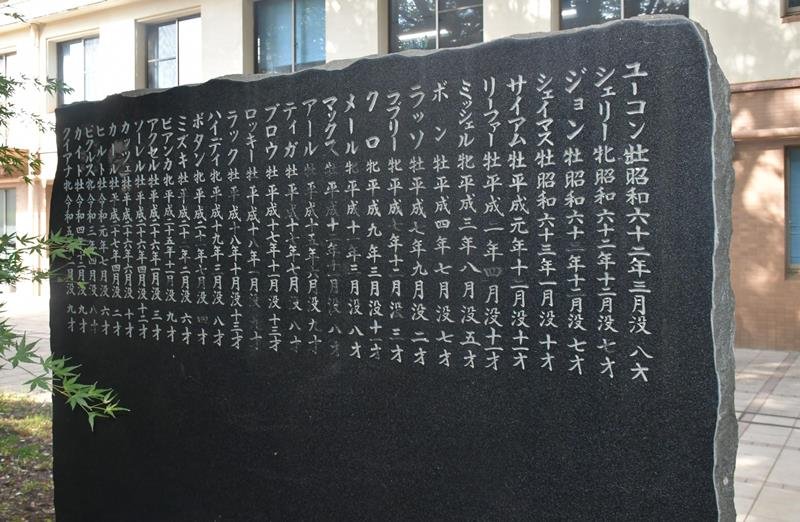 ユーコン 牡 昭和六十二年三月没 八才
シェリー 牝 昭和六十二年十二月没 七才
ジョン 牡 昭和六十 年十二月没 七才
シェイマス 牡 昭和六十三年一月没 十才
サイアム 牡 平成元年十二月没 十一才
リーファー 牡 平成 年四月没 十一才
ミッシェル 牝 平成三年八月没 五才
ボン 牡 平成四年七月没 七才
ラッソ 牡 平成七年九月没 二才
ラブリー 牝 平成七年十二月没 三才
クロ 牝 平成九年三月没 十一才
メール 牝 平成十一年三月没 八才
マックス 牡 平成十一年十月没 八才
アール 牡 平成十 年 月没 九才
ティガ 牡 平成十七年七月没 八才
ブロウ 牡 平成十七年十一月没 十三才
ロッキー 牡 平成十八年一月没 十才
ラック 牡 平成十八年十月没 十三才
ハイティ 牝 平成十九年三月没 八才
ボタン 牝 平成二十 年七月没 四才
ミズキ 牡 平成二十 年二月没 六才
ビアンカ 牝 平成二十五年十一月没 九才
アクセル 牡 平成二十六年一月没 三才
ソレル 牡 平成二十六年四月没 十二才
カフェ 牡 平成二十六年六月没 十才
カール 牡 平成二十七年四月没 二才
ヒルト 牡 令和元年七月没 六才
ピクルス 牝 令和三年 月没 八才
カイト 牡 令和四年十月没 九才
クイアナ 牝 令和五年 月没 九才